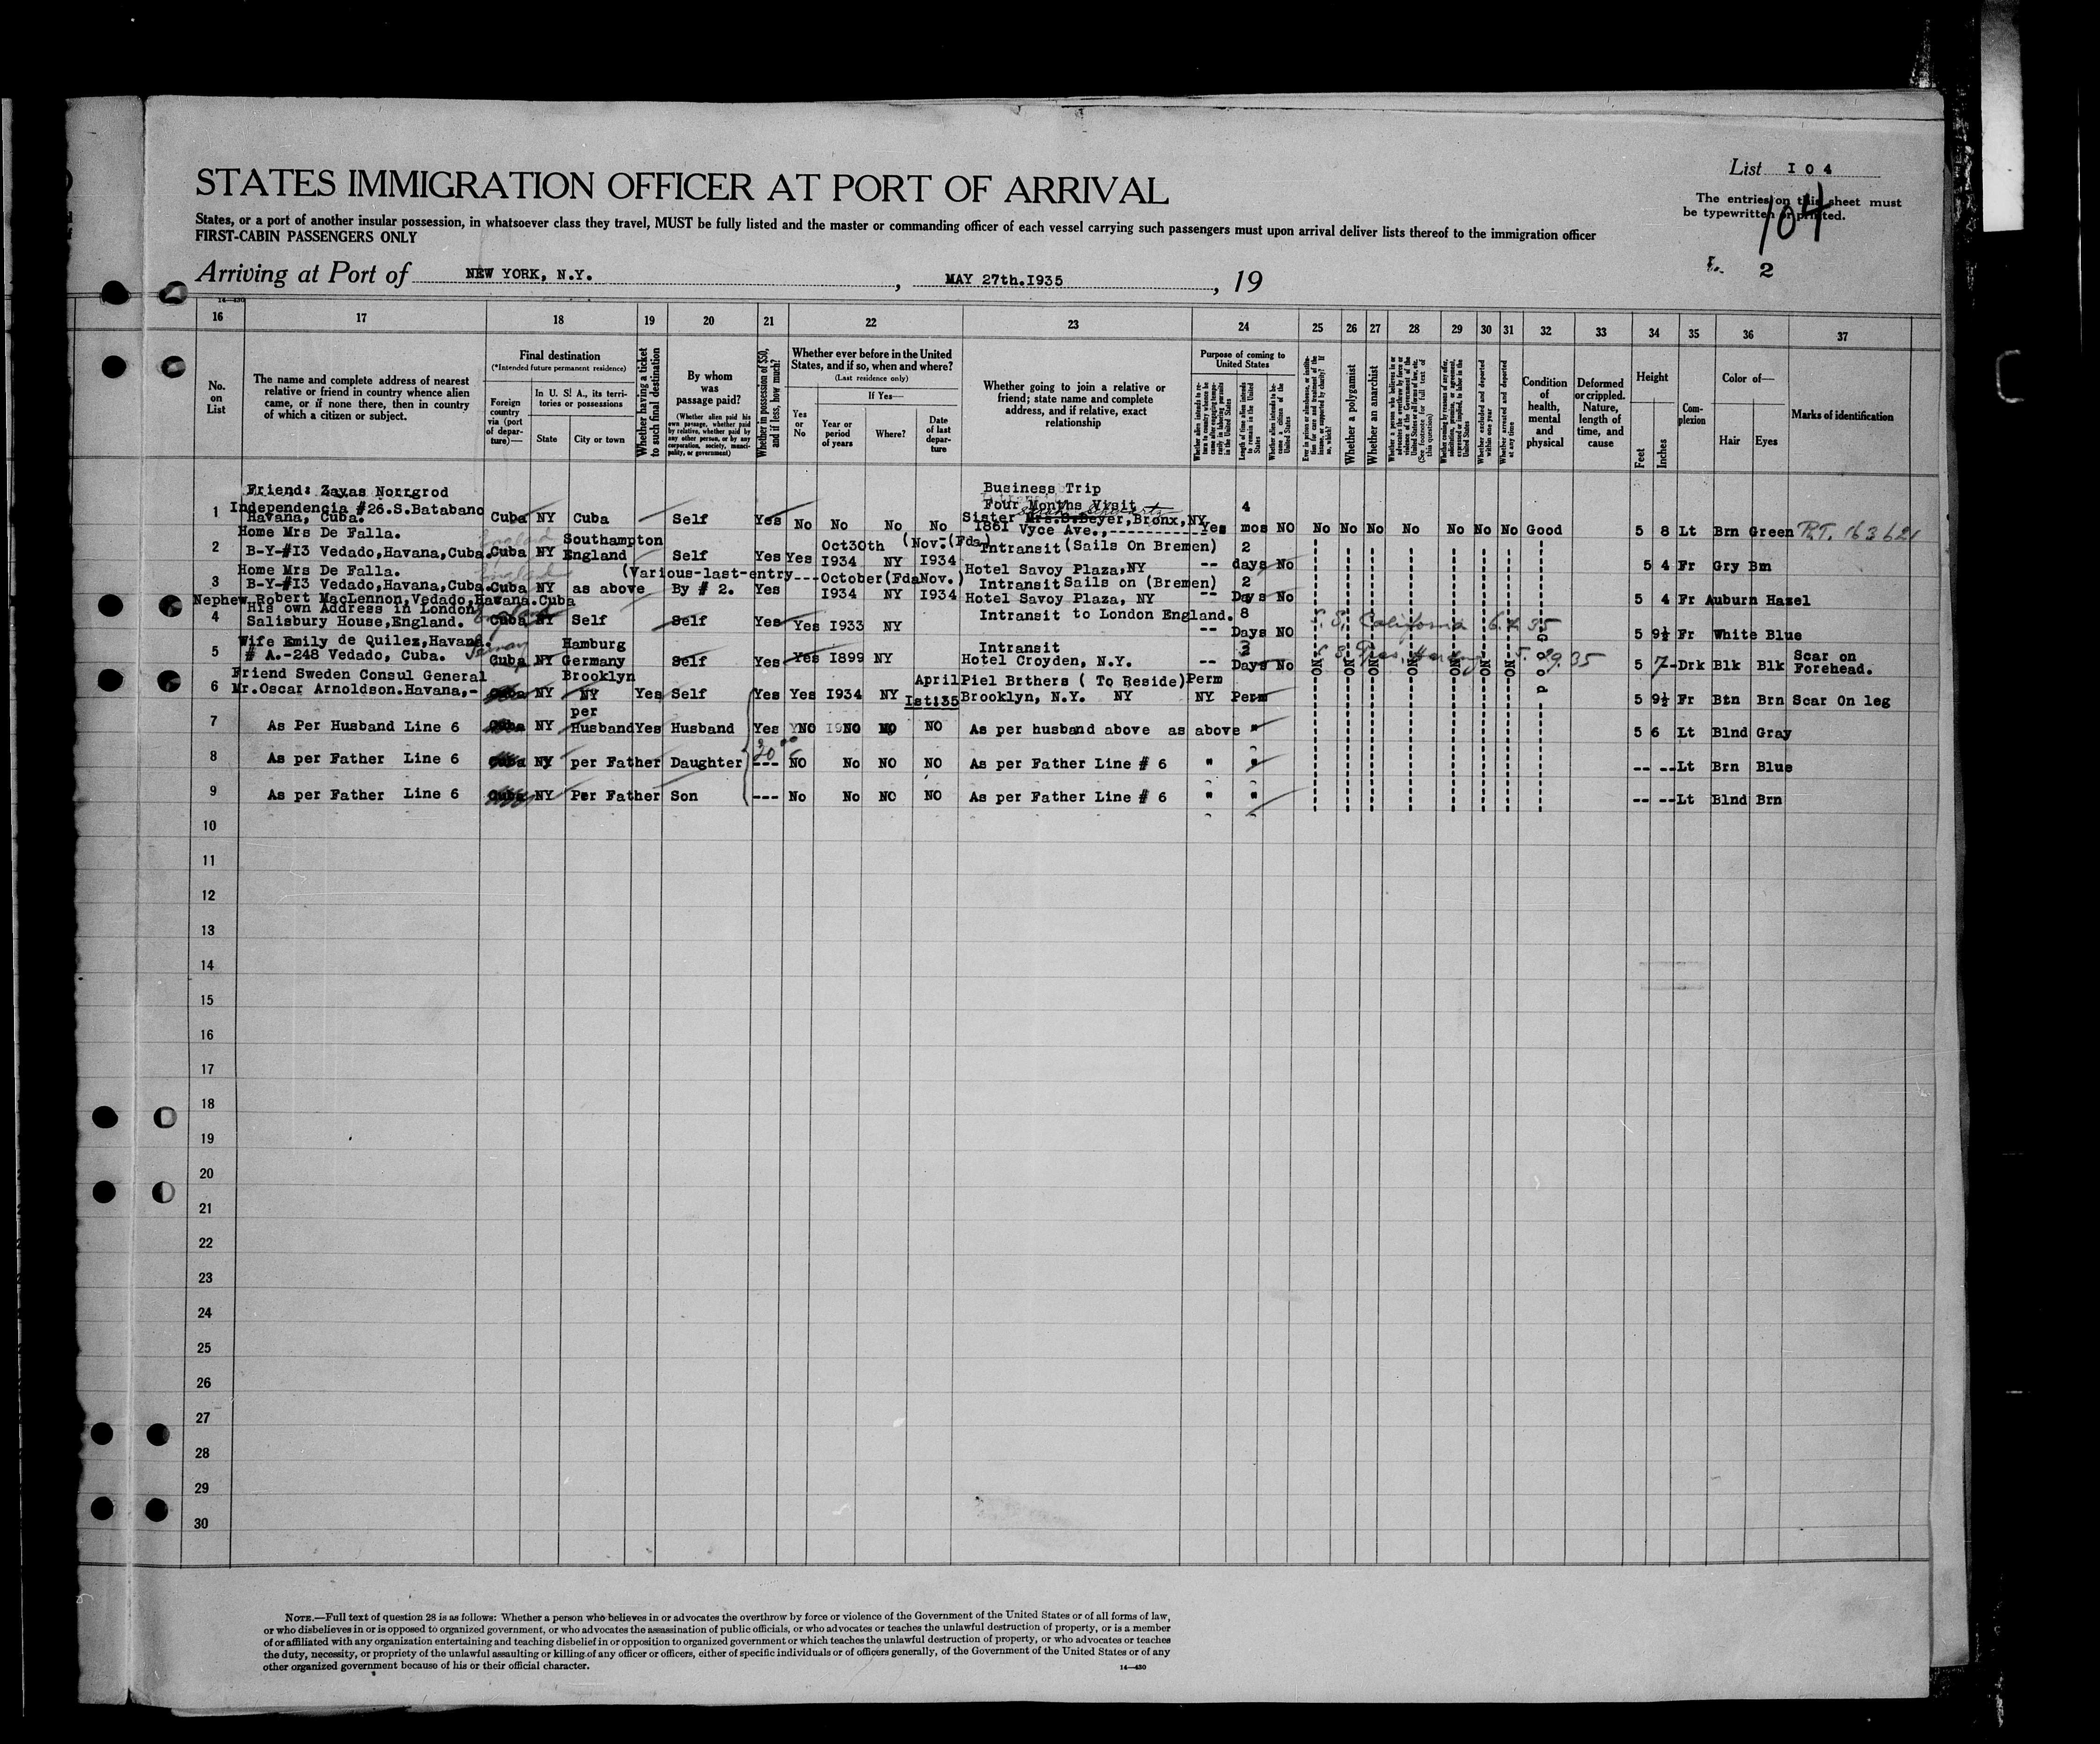 List I 0 4
STATES IMMIGRATION OFFICER AT PORT OF ARRIVAL
The entries on this sheet must
be typewritten or printed.
104
States, or a port of another insular possession, in whatsoever class they travel, MUST be fully listed and the master or commanding officer of each vessel carrying such passengers must upon arrival deliver lists thereof to the immigration officer
FIRST-CABIN PASSENGERS ONLY
2
Arriving at Port of NEW YORK, N.Y. , MAY 27th.I935 , 19
16 17 18 19 20 21 22 23 24 25 26 27 28 29 30 31 32 33 34 35 36 37
No. on List
The name and complete address of nearest relative or friend in country whence alien came, or if none there, then in country of which a citizen or subject.
Final destination
(*Intended future permanent residence)
Foreign country via (port of departure)—
In U. S. A., its territories or possessions
State
City or town
Whether having a ticket to such final destination
By whom was passage paid?
(Whether alien paid his own passage, whether paid by relative, whether paid by any other person, or by any corporation, society, municipality, or government)
Whether in possession of $50, and if less, how much?
Whether ever before in the United States, and if so, when and where?
(Last residence only)
Yes or No
If Yes—
Year or period of years
Where?
Date of last departure
Whether going to join a relative or friend; state name and complete address, and if relative, exact relationship
Purpose of coming to United States
Length of time alien intends to remain in the United States
Whether alien intends to become a citizen of the United States
Whether a polygamist
Whether an anarchist
(See footnote for full text of this question)
Whether excluded and deported within one year
Whether arrested and deported at any time
Condition of health, mental and physical
Deformed or crippled. Nature, length of time, and cause
Height
Feet
Inches
Complexion
Color of—
Hair
Eyes
Marks of identification
Friend: Zayas Norrgrod Business Trip
1 Independencia #26.S.Batabano Four Months Visit 4
Havana, Cuba. Cuba NY Cuba Self Yes No No No No Sister Mrs.S.Beyer,Bronx,NY
1861 Vyce Ave.,----------- Yes mos NO No No No No No No No Good 5 8 Lt Brn Green P.T. 163621
Home Mrs De Falla. England Southampton Oct30th (Nov.(Fda.)
2 B-Y-#I3 Vedado,Havana,Cuba. Cuba NY England Self Yes Yes I934 NY I934 Intransit (Sails On Bremen) 2
Hotel Savoy Plaza,NY -- days No 5 4 Fr Gry Bm
Home Mrs De Falla. England (Various-last-entry---October(FdaNov.)
3 B-Y-#I3 Vedado,Havana,Cuba. Cuba NY as above By # 2. Yes I934 NY I934 Intransit Sails on (Bremen) 2
Hotel Savoy Plaza, NY -- Days No 5 4 Fr Auburn Hazel
Nephew Robert MacLennon,Vedado,Havana.Cuba
His own Address in London
4 Salisbury House,England. Cuba NY Self Self Yes Yes I933 NY Intransit to London England. 8
-- Days NO S.S. California 6.4.35 5 9½ Fr White Blue
Wife Emily de Quilez,Havana. Germany Hamburg Intransit 2
5 # A.-248 Vedado, Cuba. Cuba NY Germany Self Yes Yes I899 NY Hotel Croyden, N.Y. -- Days No S.S. Pres. Harding 5.29.35 5 7- Drk Blk Blk Scar on Forehead.
Friend Sweden Consul General Brooklyn April Piel Brthers ( To Reside) Perm
6 Mr.Oscar Arnoldson.Havana,- Cuba NY NY Yes Self Yes Yes I934 NY Ist:35 Brooklyn, N.Y. NY NY Perm 5 9½ Fr Btn Brn Scar On leg
per
7 As Per Husband Line 6 Cuba NY Husband Yes Husband Yes NO NO NO NO As per husband above as above " 5 6 Lt Blnd Gray
8 As per Father Line 6 Cuba NY per Father Daughter --- NO No NO NO As per Father Line # 6 " " -- -- Lt Brn Blue
9 As per Father Line 6 Cuba NY Per Father Son --- No No NO NO As per Father Line # 6 " " -- -- Lt Blnd Brn
NO NO NO NO NO NO NO Good
10
11
12
13
14
15
16
17
18
19
20
21
22
23
24
25
26
27
28
29
30
NOTE.—Full text of question 28 is as follows: Whether a person who believes in or advocates the overthrow by force or violence of the Government of the United States or of all forms of law,
or who disbelieves in or is opposed to organized government, or who advocates the assassination of public officials, or who advocates or teaches the unlawful destruction of property, or is a member
of or affiliated with any organization entertaining and teaching disbelief in or opposition to organized government or which teaches the unlawful destruction of property, or who advocates or teaches
the duty, necessity, or propriety of the unlawful assaulting or killing of any officer or officers, either of specific individuals or of officers generally, of the Government of the United States or of any
other organized government because of his or their official character.
14—430